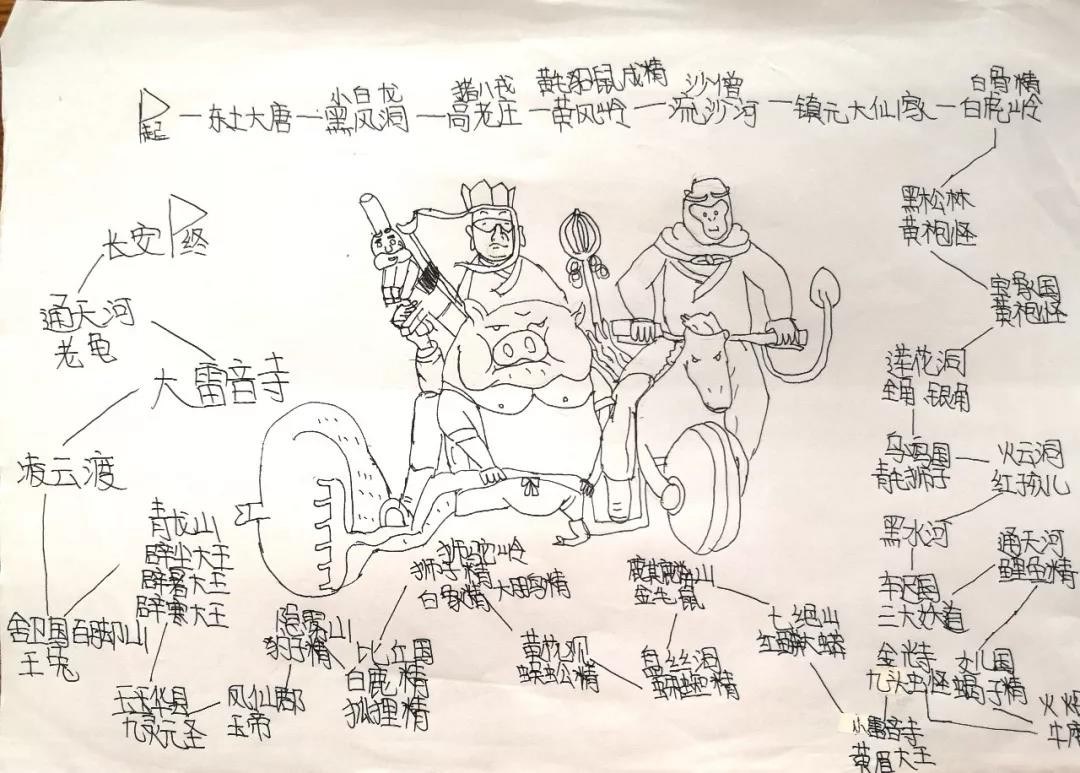 起
东土大唐
小白龙
黑风洞
猪八戒
高老庄
黄毛貂鼠成精
黄风岭
沙僧
流沙河
镇元大仙家
白骨精
白虎岭
黑松林
黄袍怪
宝象国
黄袍怪
莲花洞
金角、银角
乌鸡国
青毛狮子
火云洞
红孩儿
黑水河
通天河
鲤鱼精
车迟国
三大妖道
女儿国
蝎子精
火焰
牛魔
金光寺
九头虫怪
小雷音寺
黄眉大王
七绝山
红鳞大蟒
金毛鼠
盘丝洞
蜘蛛精
黄花观
蜈蚣精
狮驼岭
狮子精
白象精
大鹏精
比丘国
白鹿精
狐狸精
隐雾山
豹子精
凤仙郡
玉帝
玉华县
九灵元圣
青龙山
辟尘大王
辟暑大王
辟寒大王
舍卫国百脚山
玉兔
凌云渡
大雷音寺
通天河
老龟
长安
终